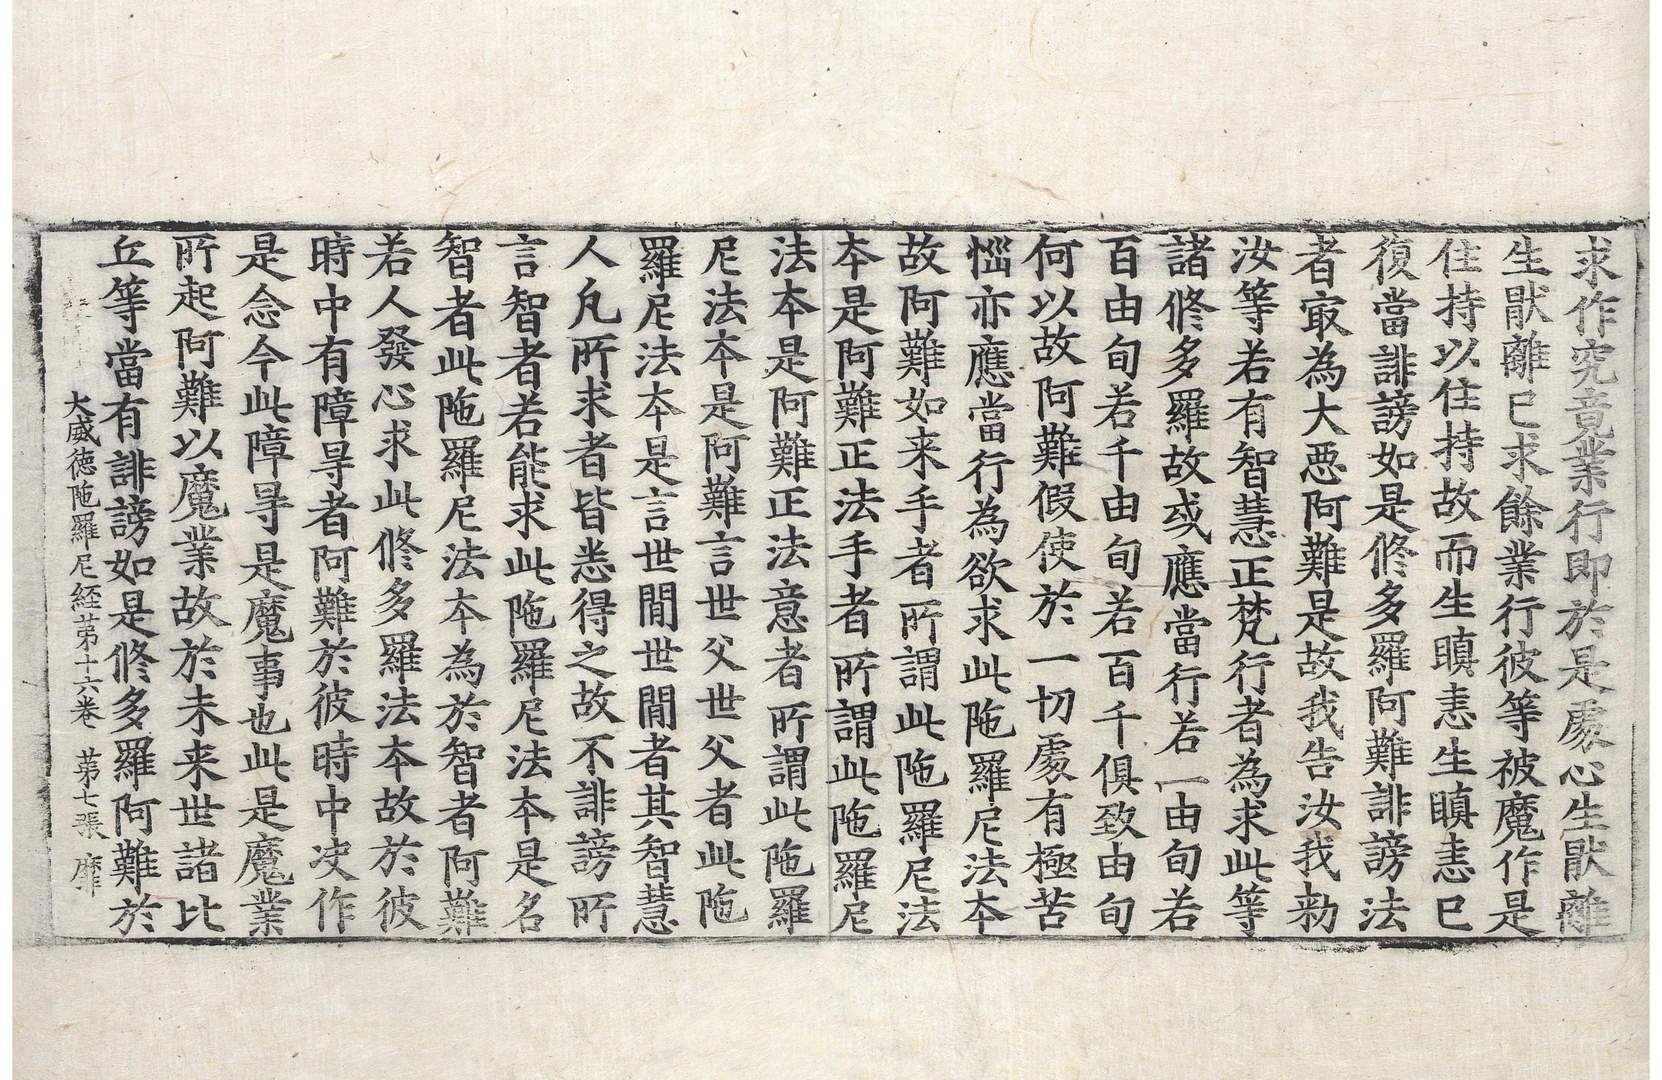 求作究竟業行即於是處心生猒離
生猒離已求餘業行彼等被魔作是
住持以住持故而生瞋恚生瞋恚已
復當誹謗如是修多羅阿難誹謗法
者寂為大恶阿難是故我告汝我勑
汝等若有智慧正梵行者為求此等
諸修多羅故或應當行若一由旬若
百由旬若千由旬若百千俱致由旬
何以故阿難假使於一切處有極苦
惱亦應當行為欲求此陁羅尼法本
故阿難如来手者所謂此陁羅尼法
本是阿難正法手者所謂此陁羅尼
法本是阿難正法意者所謂此陁羅
尼法本是阿難言世父世父者此陁
羅尼法本是言世間世間者其智慧
人凡所求者皆悉得之故不誹謗所
言智者若能求此陁羅尼法本是名
智者此陁羅尼法本為於智者阿難
若人發心求此修多羅法本故於彼
時中有障㝵者阿難於彼時中决作
是念今此障㝵是魔事也此是魔業
所起阿難以魔業故於未来世諸比
丘等當有誹謗如是修多羅阿難於
大威徳陁羅尼経苐十六卷 苐七張 靡